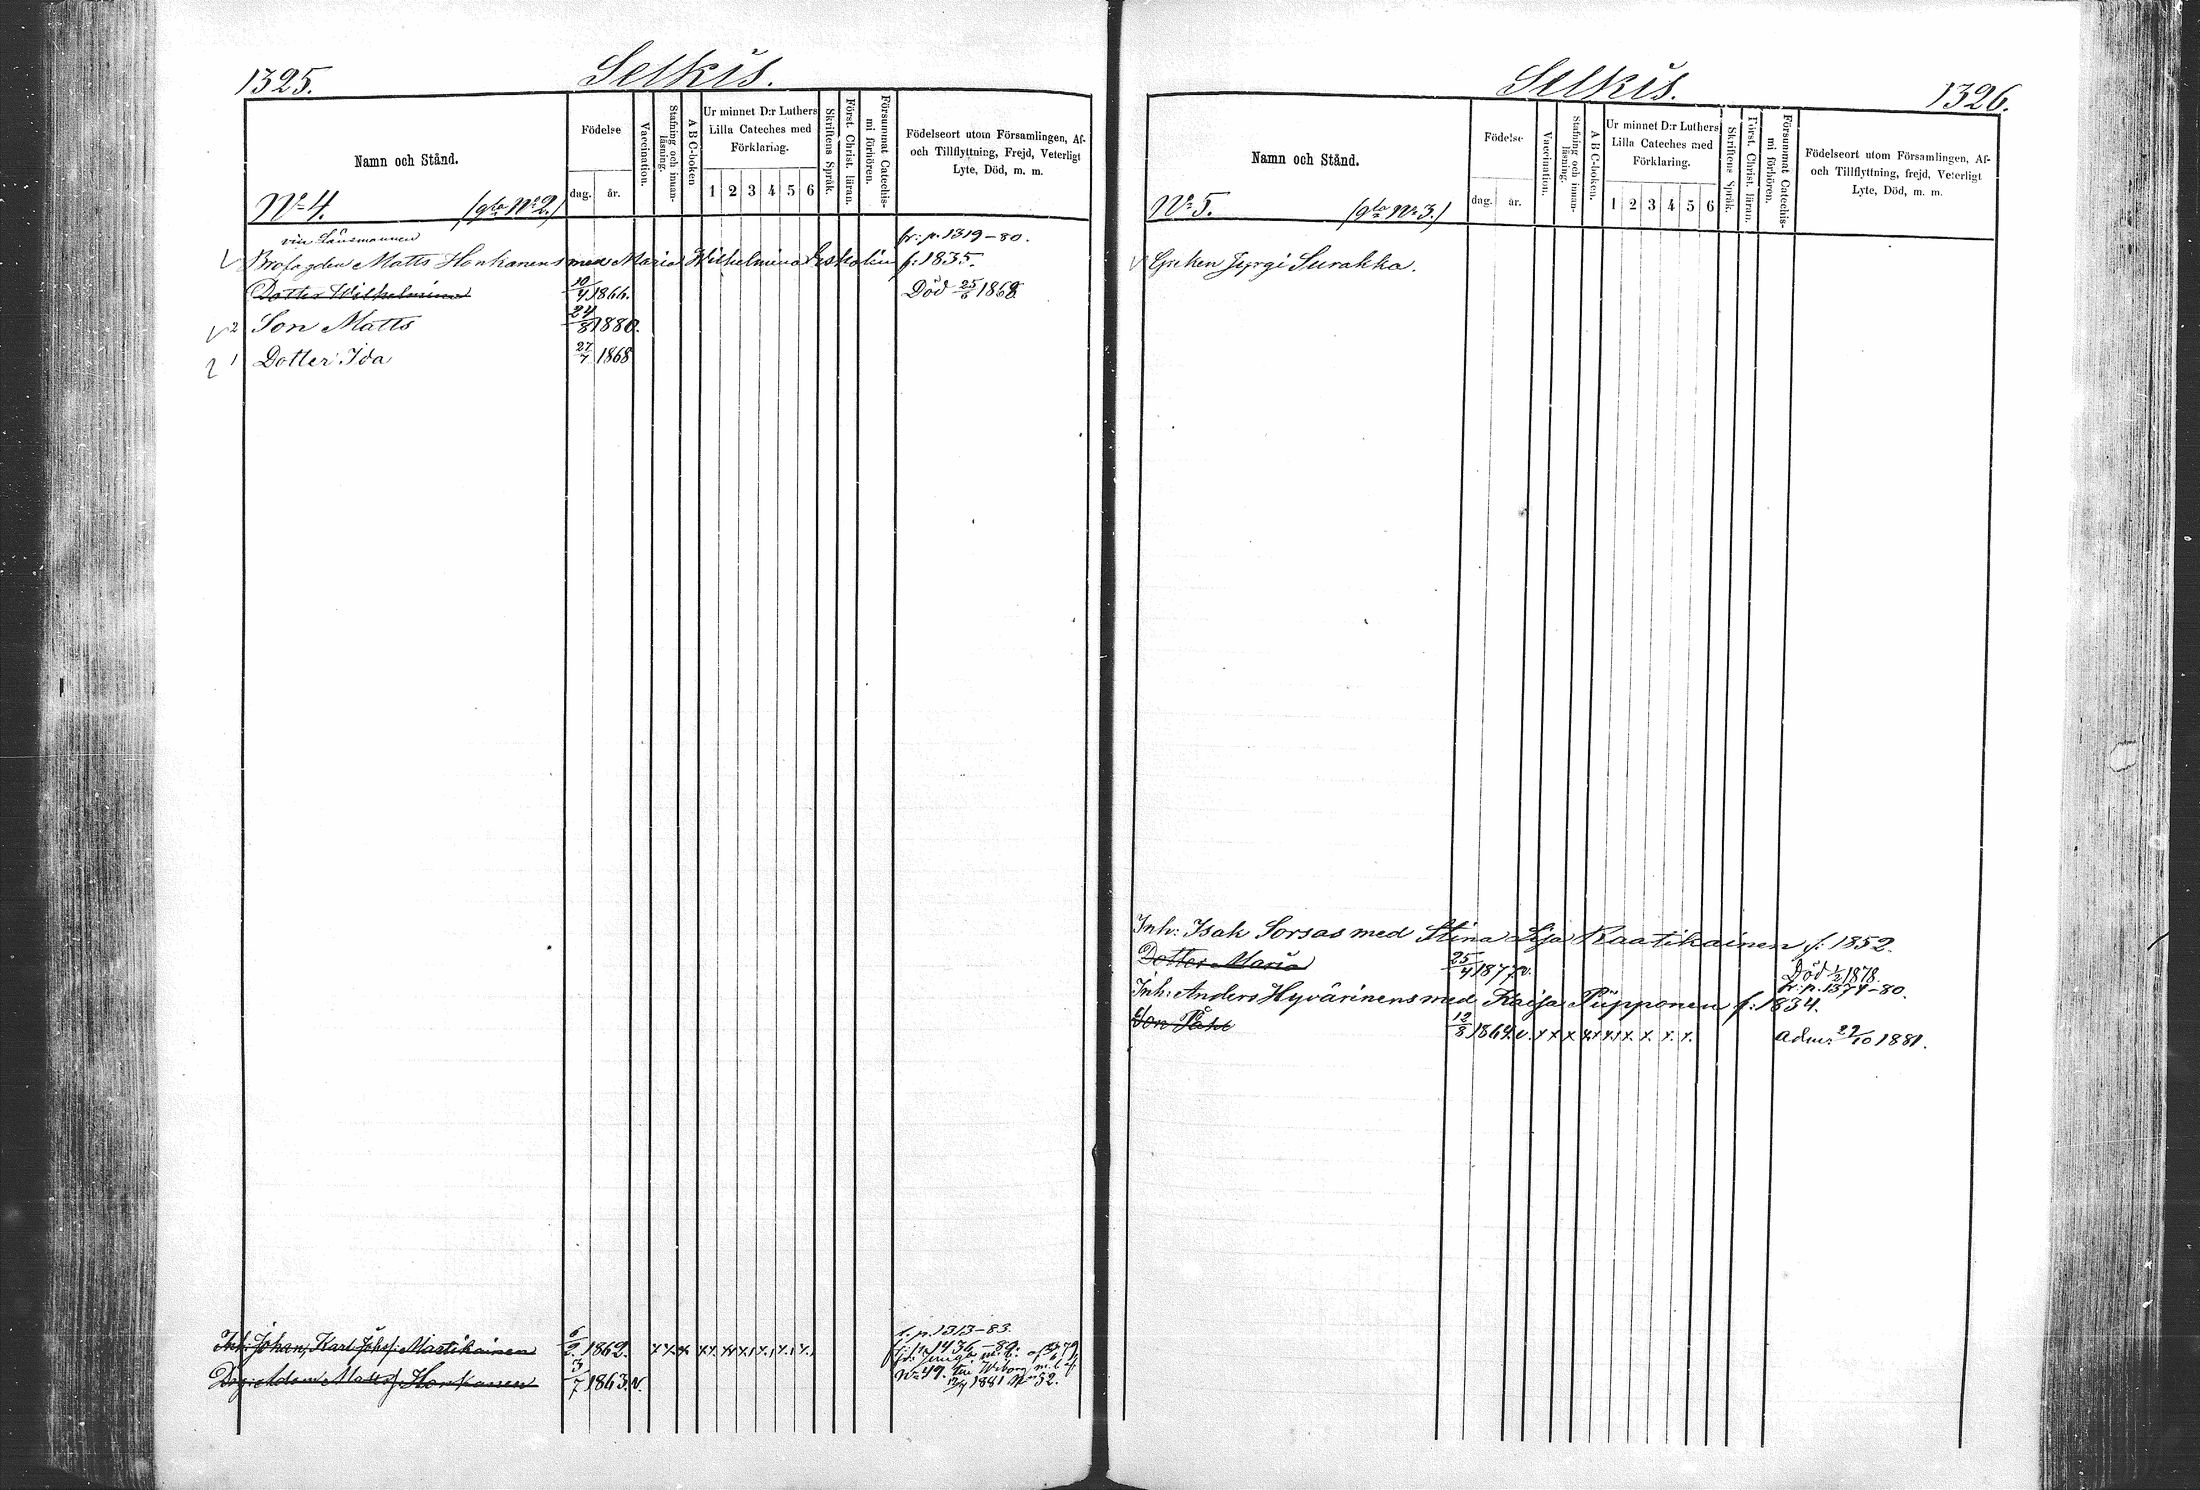 1325.
Selkis.
Namn och Stånd.
Födelse
dag.
år.
Vaccination.
Stafning och innan-
läsning.
A B C-boken
Ur minnet D:r Luthers
Lilla Cateches med
Förklaring.
1 2 3 4 5 6
Skriftens Språk.
Först. Christ. läran.
Försummat Catechis-
mi förhören.
Födelseort utom Församlingen, Af-
och Tillflyttning, Frejd, Veterligt
Lyte, Död, m. m.
N:o 4. (gla N:o 2.)
Länsmannen
fr: p. 1319–80.
Matts Honkanens med Maria Wilhelmina f. 1835.
Dotter Wilhelmina 10/4 1866. Död 25/6 1868
2 Son Matts 24/8 1880.
1 Dotter Ida 27/7 1868
t. p. 1313–83.
Inh: Johan Karl Martikainen 6/2 1862. x x x x x x x x x x
f: p. 1436–82.
Adam Matts: Honkanen 3/7 1863. v.
N:o 49. Wiborg m. b. af
1881 N:o 52.
Selkis.
1326.
Namn och Stånd.
Födelse
dag.
år.
Vaccination.
Stafning och innan-
läsning.
A B C-boken.
Ur minnet D:r Luthers
Lilla Cateches med
Förklaring.
1 2 3 4 5 6
Skriftens Språk.
Först. Christ. läran.
Försummat Catechis-
mi förhören.
Födelseort utom Församlingen, Af-
och Tillflyttning, frejd, Veterligt
Lyte, Död, m. m.
N:o 5. (gla N:o 3.)
Greken Jyrgi Surakka.
Inh: Isak Sorsas med Stina Lisa Raatikainen f: 1852.
Dotter Maria 25/4 1877 v. Död 1/2 1878.
fr: p. 1374–80.
Inh: Anders Hyvärinens med Kaisa Püpponen f: 1834.
Son Påhl 12/8 1864. v. x x x x x x x x x adm: 29/10 1881.